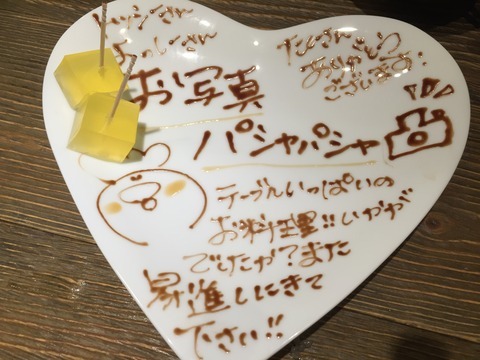 よっしーさん
たくさんきて
ありがとう
ございます!
お写真
パシャパシャ
テーブルいっぱいの
お料理!!いかが
でしたか?また
昇進しにきて
下さい!!